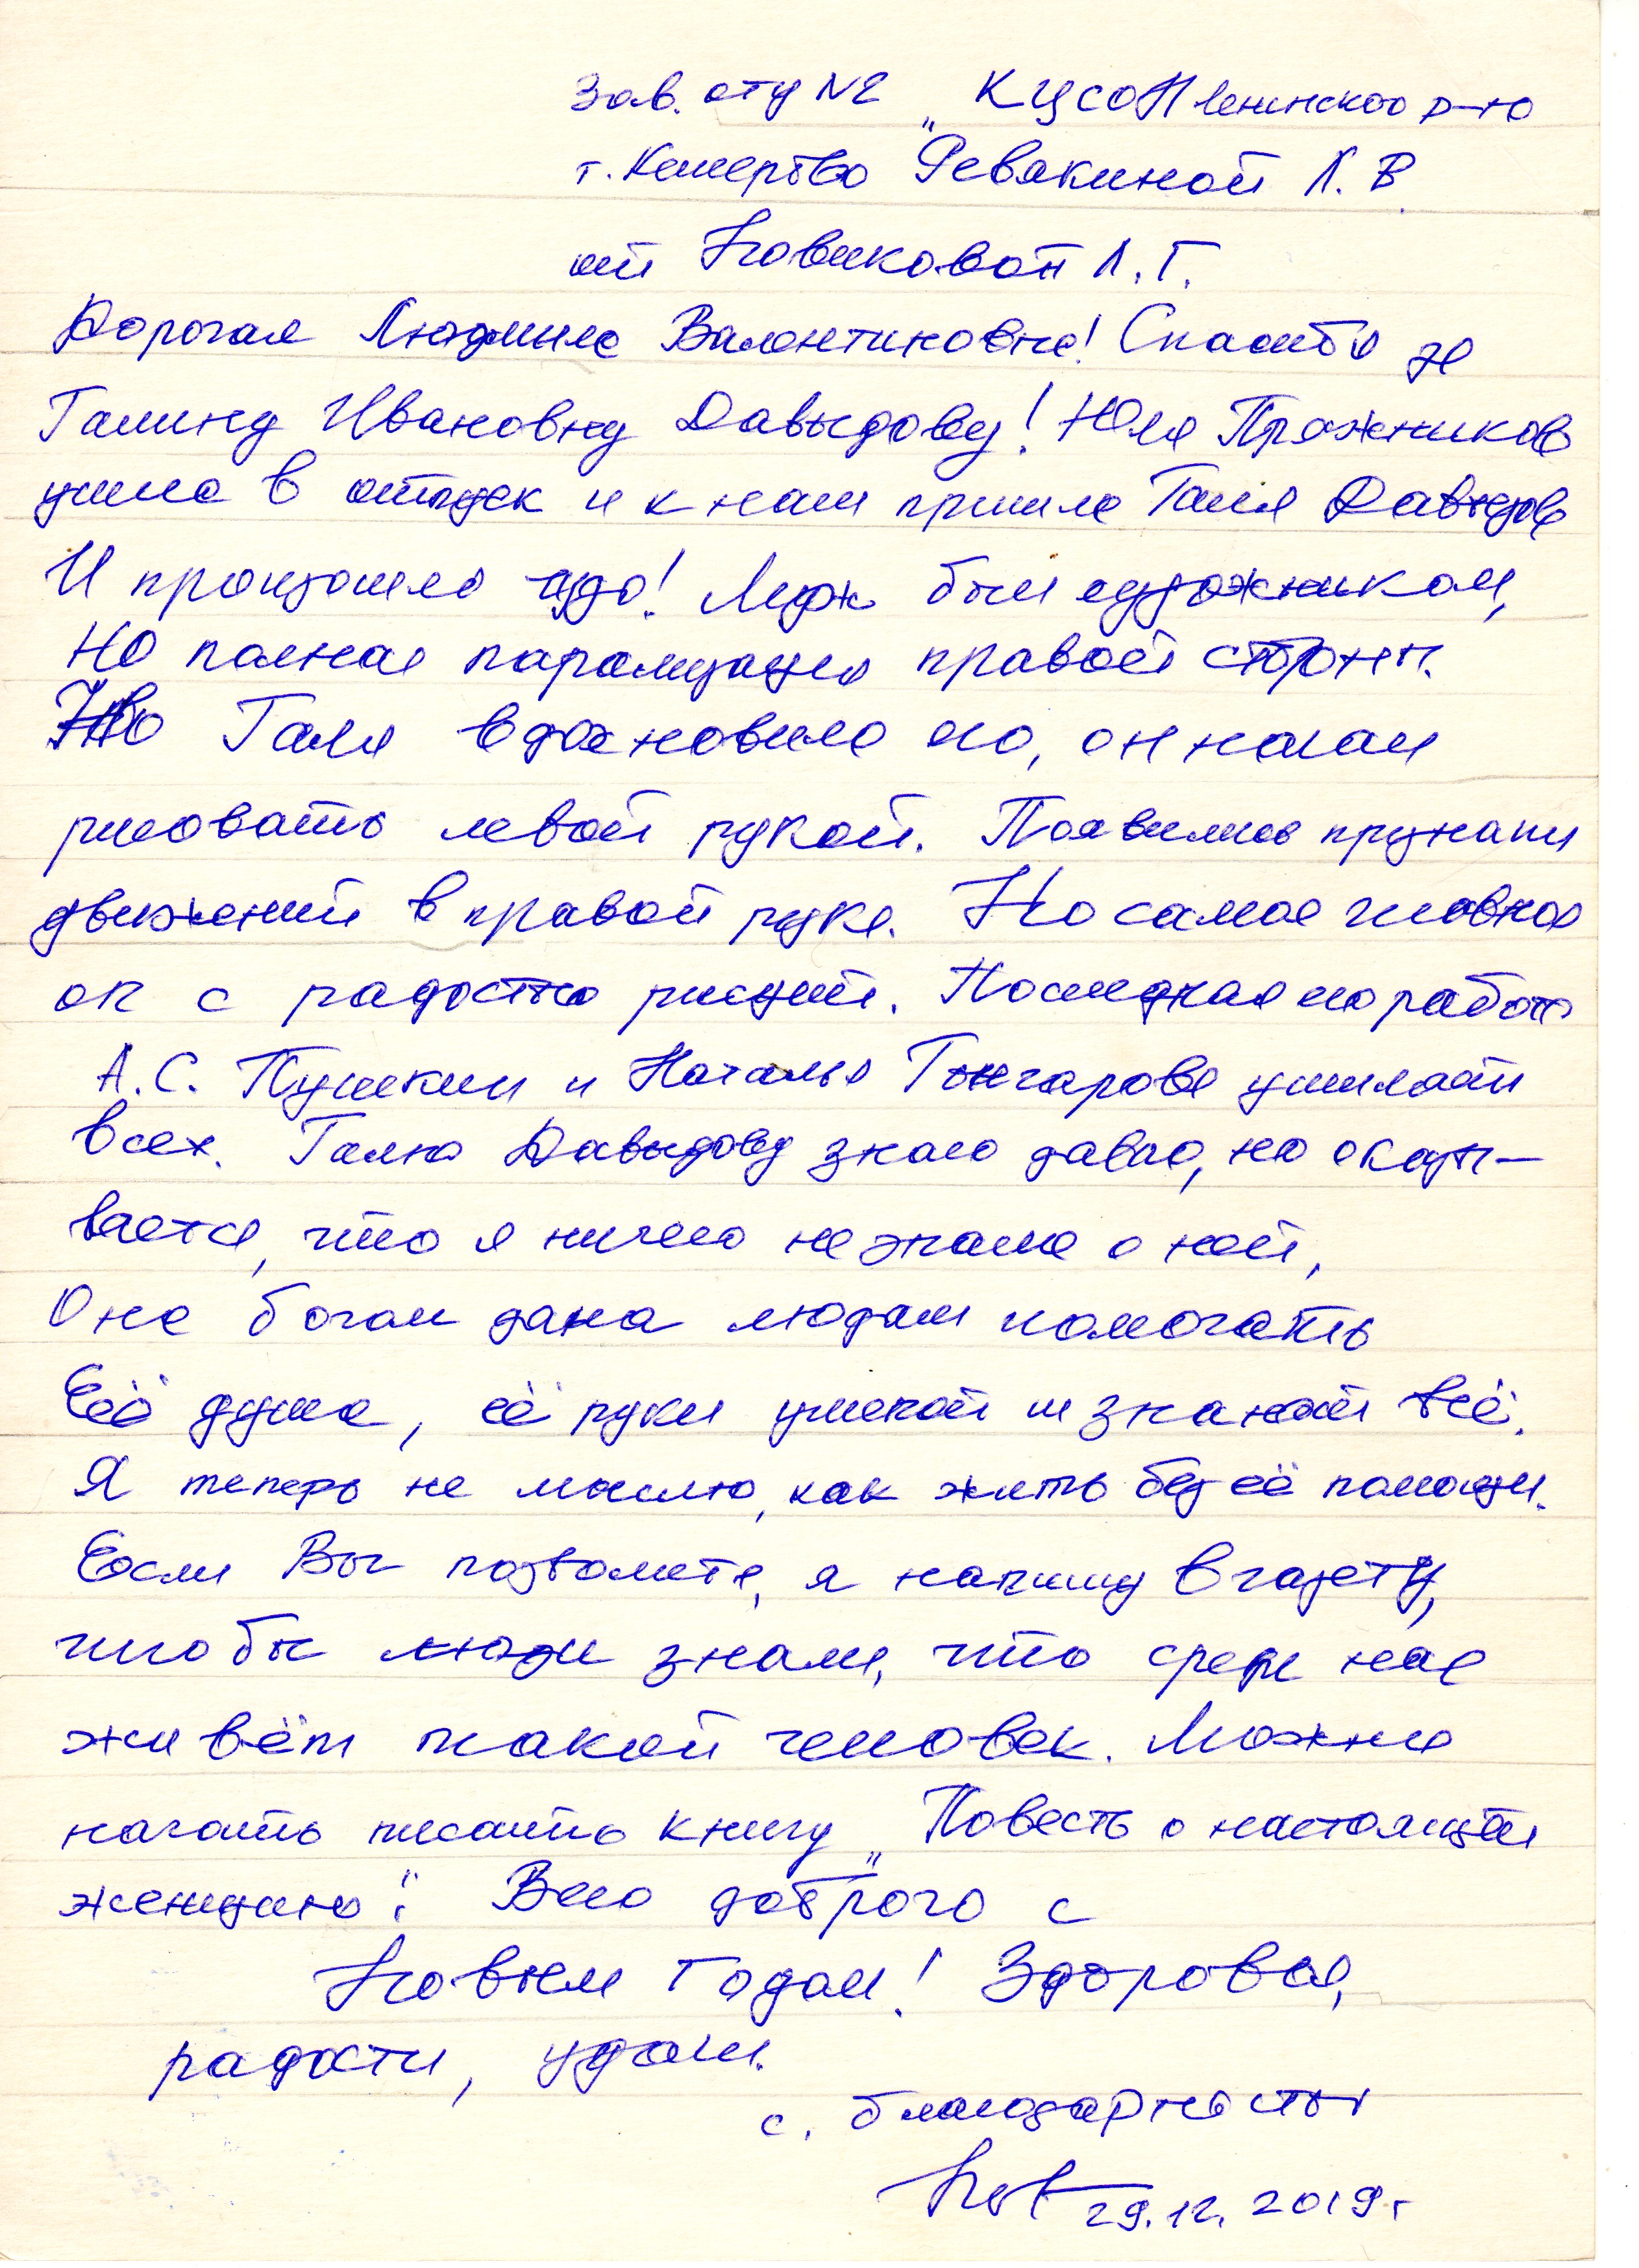 Зав. оту №2 „КЦСОН Ленинского р-на
г. Кемерово" Ревякиной Л. В.
от Новиковой Л. Г.
Дорогая Людмила Валентиновна! Спасибо за
Галину Ивановну Давыдову! Юля Пряжникова
ушла в отпуск и к нам пришла Галя Давыдова
И произошло чудо! Муж был художником,
но полная парализация правой стороны.
Но Галя вдохновила его, он начал
рисовать левой рукой. Появились признаки
движений в правой руке. Но самое главное
он с радостью рисует. Последняя его работа
А.С. Пушкин и Наталья Гончарова умиляет
всех. Галю Давыдову знаю давно, но оказы-
вается, что я ничего не знала о ней,
Она богом дана людям помогать
Её душа, её руки умеют и знают всё.
Я теперь не мыслю, как жить без её помощи.
Если Вы позволите, я напишу в газету,
чтобы люди знали, что среди нас
живёт такой человек. Можно
начать писать книгу „Повесть о настоящей
женщине". Всего доброго с
Новым Годом! Здоровья,
радости, удачи.
с. благодарностью
29.12.2019 г